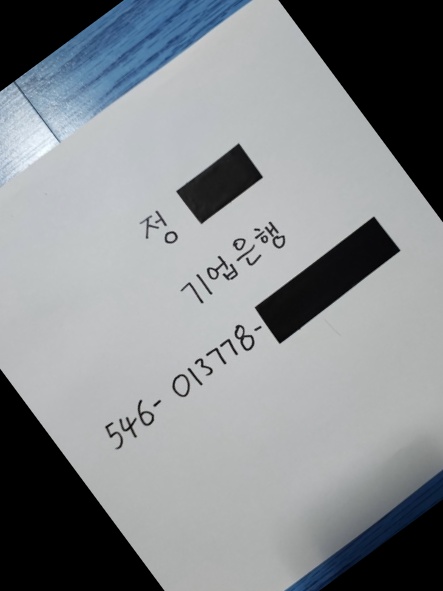 정
기업은행
546- 013778-